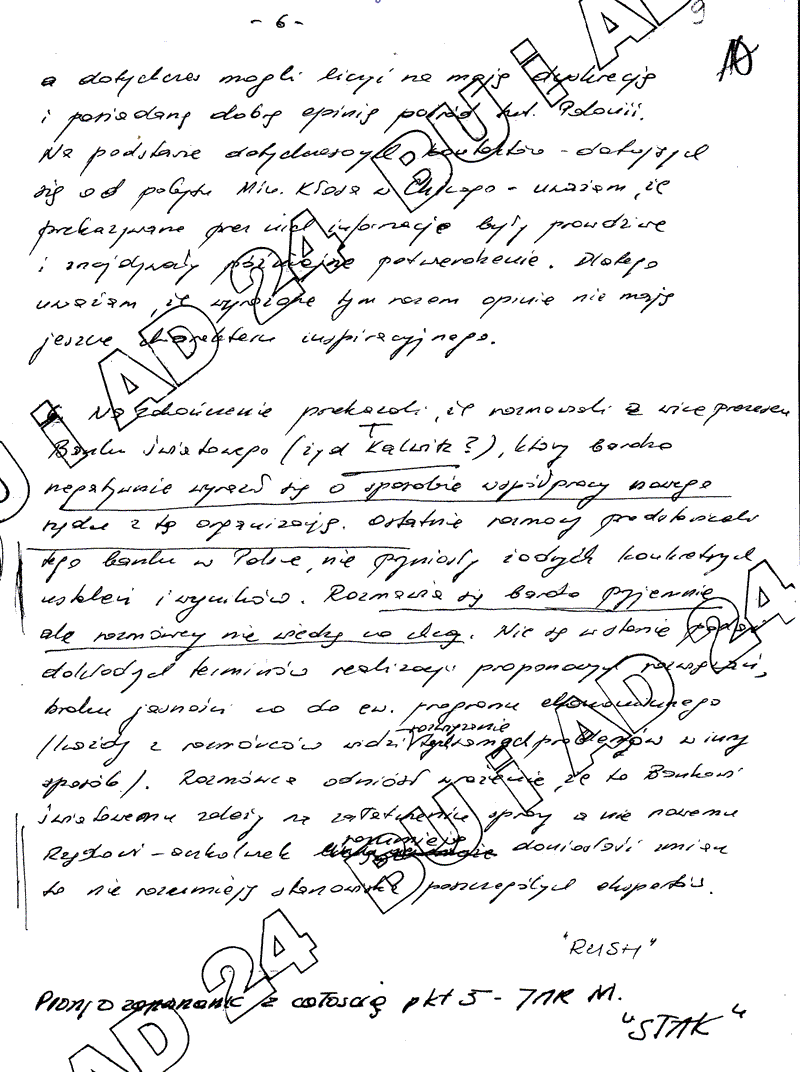 - 6 -
9
a dotychczas mogli liczyć na moją dyskrecję
i posiadaną dobrą opinię pośród tut. Polonii.
Na podstawie dotychczasowych kontaktów - datujących
się od pobytu Min. Kłosa w Chicago - uważam, że
przekazywane przez nich informacje były prawdziwe
i znajdywały późniejsze potwierdzenie. Dlatego
uważam, że wyrażone tym razem opinie nie mają
jeszcze charakteru inspiracyjnego.
Na zakończenie przekazali, że rozmawiali z wice prezesem
Banku Światowego (żyd Kalwitz?), który bardzo
negatywnie wyraził się o sposobie współpracy nowego
rządu z tą organizacją. Ostatnie rozmowy przedstawicieli
tego banku w Polsce, nie przyniosły żadnych konkretnych
ustaleń i wyników. Rozmawia się bardzo przyjemnie
ale rozmówcy nie wiedzą co chcą. Nie są w stanie podać
dokładnych terminów realizacji proponowanych rozwiązań,
braku jasności co do ew. programu ekonomicznego
/każdy z rozmówców widzi rozwiązanie problemów w inny
sposób/. Rozmówca odniósł wrażenie, że to Bankowi
Światowemu zależy na załatwieniu sprawy a nie nowemu
Rządowi - aczkolwiek rozumieją doniosłość zmian
to nie rozumieją stanowiska poszczególnych ekspertów.
"RUSH"
Proszę o zapoznanie z całością pkt 5 - J.M.
"STAK"
BU i AD 24
BU i AD 24
BU i AD 24
BU i AD 24